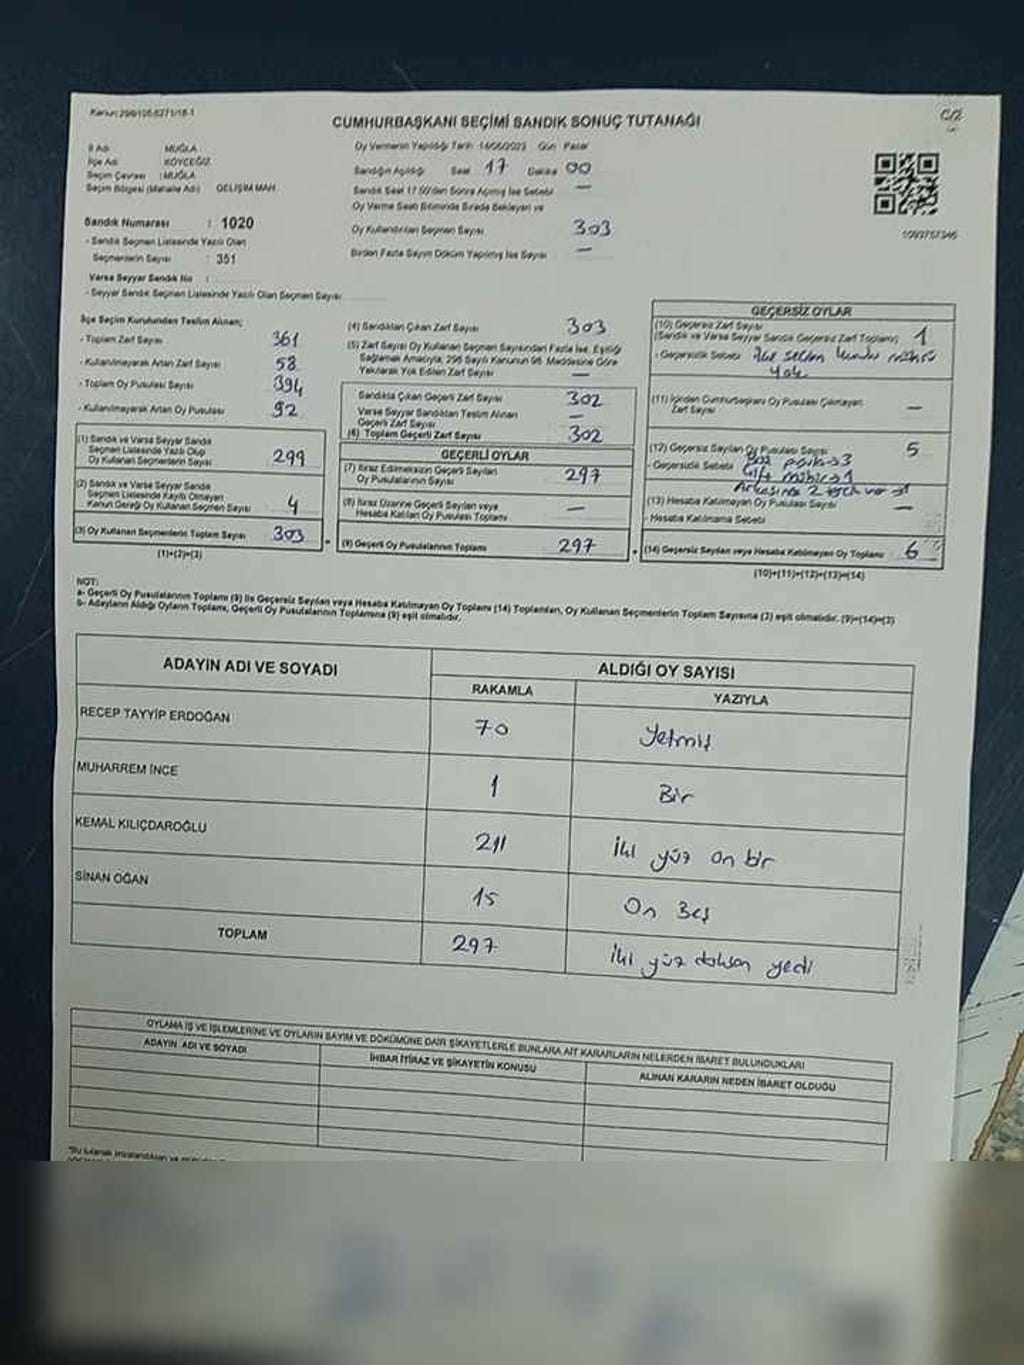 Kanun:298/106-6271/18-1
CUMHURBAŞKANI SEÇİMİ SANDIK SONUÇ TUTANAĞI
C/2
İl Adı : MUĞLA
İlçe Adı : KÖYCEĞİZ
Seçim Çevresi : MUĞLA
Seçim Bölgesi (Mahalle Adı) GELİŞİM MAH.
Oy Vermenin Yapıldığı Tarih 14/05/2023 Gün Pazar
Sandığın Açıldığı Saat 17 Dakika 00
Sandık Saat 17.00'den Sonra Açılmış İse Sebebi —
Oy Verme Saati Bitiminde Sırada Bekleyen ve
Oy Kullandırılan Seçmen Sayısı 303
Birden Fazla Sayım Döküm Yapılmış İse Sayısı —
Sandık Numarası : 1020
- Sandık Seçmen Listesinde Yazılı Olan
Seçmenlerin Sayısı : 351
Varsa Seyyar Sandık No :
- Seyyar Sandık Seçmen Listesinde Yazılı Olan Seçmen Sayısı
İlçe Seçim Kurulundan Teslim Alınan;
- Toplam Zarf Sayısı 361
- Kullanılmayarak Artan Zarf Sayısı 58
- Toplam Oy Pusulası Sayısı 394
- Kullanılmayarak Artan Oy Pusulası 92
(1) Sandık ve Varsa Seyyar Sandık
Seçmen Listesinde Yazılı Olup
Oy Kullanan Seçmenlerin Sayısı 299
(2) Sandık ve Varsa Seyyar Sandık
Seçmen Listesinde Kayıtlı Olmayan
Kanun Gereği Oy Kullanan Seçmen Sayısı 4
(3) Oy Kullanan Seçmenlerin Toplam Sayısı 303
(1)+(2)=(3)
(4) Sandıktan Çıkan Zarf Sayısı 303
(5) Zarf Sayısı Oy Kullanan Seçmen Sayısından Fazla İse, Eşitliği
Sağlamak Amacıyla, 298 Sayılı Kanunun 98. Maddesine Göre
Yakılarak Yok Edilen Zarf Sayısı —
Sandıkta Çıkan Geçerli Zarf Sayısı 302
Varsa Seyyar Sandıktan Teslim Alınan
Geçerli Zarf Sayısı —
(6) Toplam Geçerli Zarf Sayısı 302
GEÇERLİ OYLAR
(7) İtiraz Edilmeksizin Geçerli Sayılan
Oy Pusulalarının Sayısı 297
(8) İtiraz Üzerine Geçerli Sayılan veya
Hesaba Katılan Oy Pusulası Toplamı —
(9) Geçerli Oy Pusulalarının Toplamı 297
GEÇERSİZ OYLAR
(10) Geçersiz Zarf Sayısı
(Sandık ve Varsa Seyyar Sandık Geçersiz Zarf Toplamı) 1
- Geçersizlik Sebebi İlçe seçim kurulu mührü
Yok
(11) İçinden Cumhurbaşkanı Oy Pusulası Çıkmayan
Zarf Sayısı —
(12) Geçersiz Sayılan Oy Pusulası Sayısı 5
- Geçersizlik Sebebi Boş pusula 3
Çift mühür 1
Arkasında 2 tercih var 1
(13) Hesaba Katılmayan Oy Pusulası Sayısı —
- Hesaba Katılmama Sebebi
(14) Geçersiz Sayılan veya Hesaba Katılmayan Oy Toplamı 6
(10)+(11)+(12)+(13)=(14)
NOT:
a- Geçerli Oy Pusulalarının Toplamı (9) ile Geçersiz Sayılan veya Hesaba Katılmayan Oy Toplamı (14) Toplamları, Oy Kullanan Seçmenlerin Toplam Sayısına (3) eşit olmalıdır. (9)+(14)=(3)
b- Adayların Aldığı Oyların Toplamı, Geçerli Oy Pusulalarının Toplamına (9) eşit olmalıdır.
ADAYIN ADI VE SOYADI
ALDIĞI OY SAYISI
RAKAMLA YAZIYLA
RECEP TAYYİP ERDOĞAN 70 Yetmiş
MUHARREM İNCE 1 Bir
KEMAL KILIÇDAROĞLU 211 İki yüz on bir
SİNAN OĞAN 15 On Beş
TOPLAM 297 İki yüz doksan yedi
OYLAMA İŞ VE İŞLEMLERİNE VE OYLARIN SAYIM VE DÖKÜMÜNE DAİR ŞİKAYETLERLE BUNLARA AİT KARARLARIN NELERDEN İBARET BULUNDUKLARI
ADAYIN ADI VE SOYADI İHBAR İTİRAZ VE ŞİKAYETİN KONUSU ALINAN KARARIN NEDEN İBARET OLDUĞU